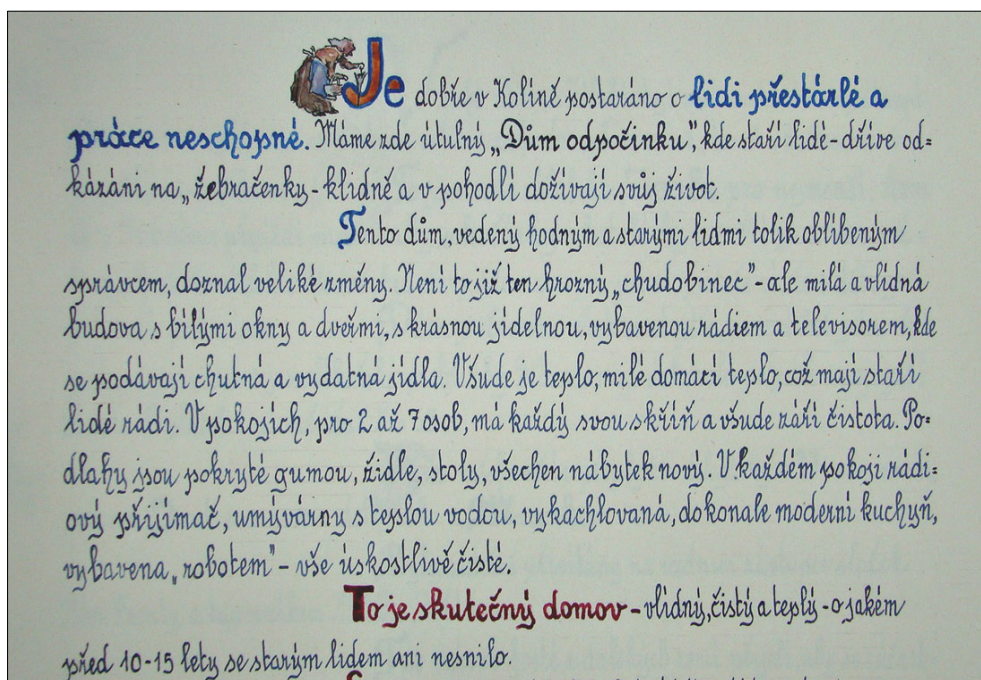 Je dobře v Kolíně postaráno o lidi přestárlé a
práce neschopné. Máme zde útulný „Dům odpočinku", kde staří lidé - dříve od=
kázáni na „žebračenky - klidně a v pohodlí dožívají svůj život.
Tento dům, vedený hodným a starými lidmi tolik oblíbeným
správcem, doznal veliké změny. Není to již ten hrozný „chudobinec" - ale milá a vlídná
budova s bílými okny a dveřmi, s krásnou jídelnou, vybavenou rádiem a televisorem, kde
se podávají chutná a vydatná jídla. Všude je teplo, milé domácí teplo, což mají staří
lidé rádi. V pokojích, pro 2 až 7 osob, má každý svou skříň a všude září čistota. Po=
dlahy jsou pokryté gumou, židle, stoly, všechen nábytek nový. V každém pokoji rádi=
ový přijímač, umývárny s teplou vodou, vykachlovaná, dokonale moderní kuchyň,
vybavena „robotem" - vše úskostlivě čisté.
To je skutečný domov - vlídný, čistý a teplý - o jakém
před 10-15 lety se starým lidem ani nesnilo.